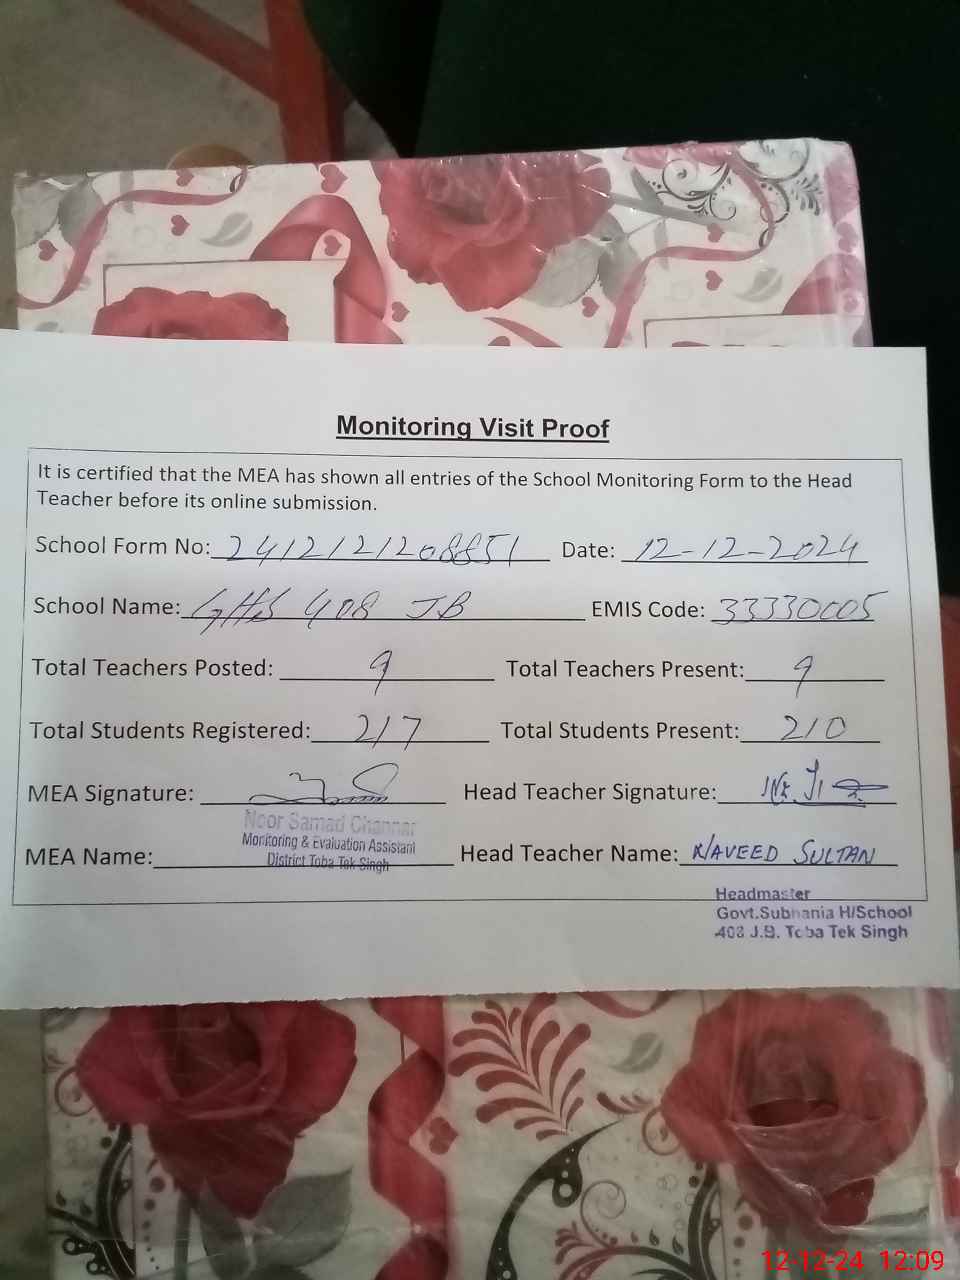 Monitoring Visit Proof
It is certified that the MEA has shown all entries of the School Monitoring Form to the Head
Teacher before its online submission.
School Form No: 2412121208851 Date: 12-12-2024
School Name: GHS 408 JB EMIS Code: 33330005
Total Teachers Posted: 9 Total Teachers Present: 9
Total Students Registered: 217 Total Students Present: 210
MEA Signature: Head Teacher Signature:
Noor Samad Channar
Monitoring & Evaluation Assistant
MEA Name: District Toba Tek Singh Head Teacher Name: NAVEED SULTAN
Headmaster
Govt.Subhania H/School
408 J.B. Toba Tek Singh
12-12-24 12:09